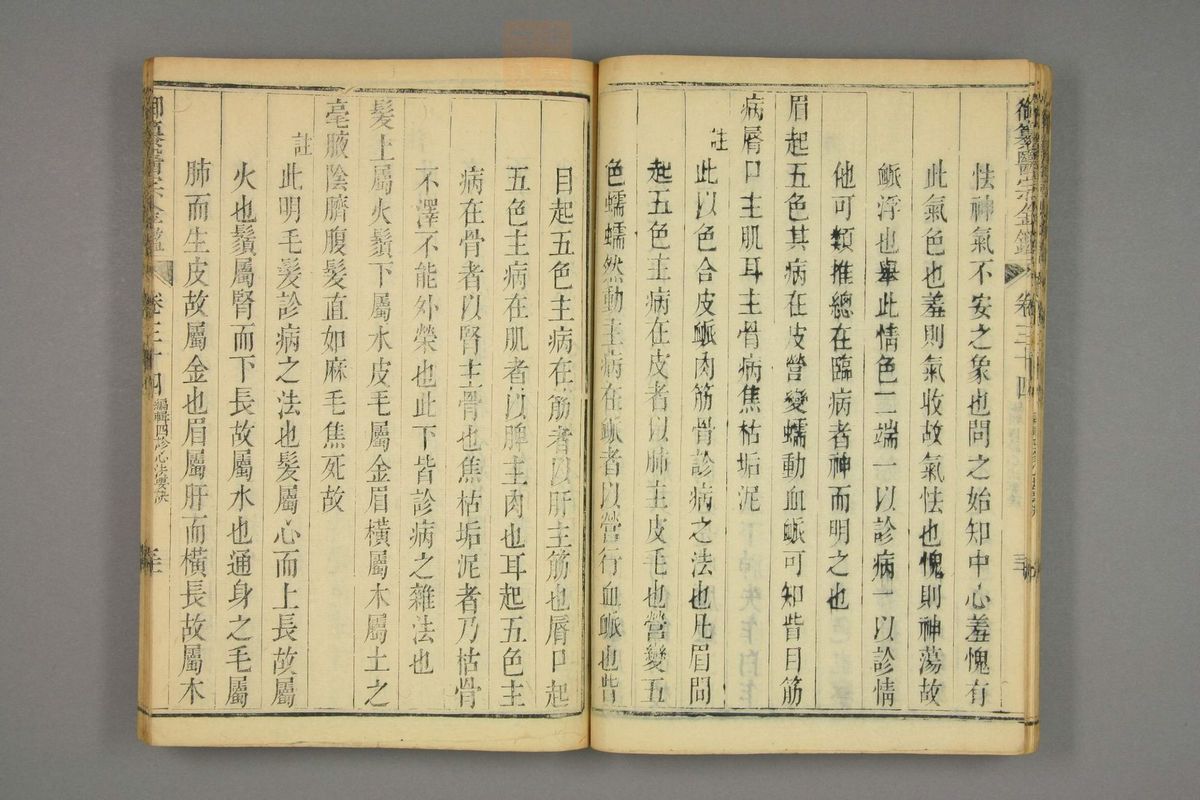 御纂醫宗金鑑 卷三十四
怯神氣不安之象也問之始知中心羞愧有
此氣色也羞則氣收故氣怯也愧則神蕩故
脈浮也舉此情色二端一以診病一以診情
他可類推總在臨病者神而明之也
眉起五色其病在皮營變蠕動血脈可知眥目筋
病脣口主肌耳主骨病焦枯垢泥
註
此以色合皮脈肉筋骨診病之法也凡眉間
起五色主病在皮者以肺主皮毛也營變五
色蠕蠕然動主病在脈者以營行血脈也眥
目起五色主病在筋者以肝主筋也脣口起
五色主病在肌者以脾主肉也耳起五色主
病在骨者以腎主骨也焦枯垢泥者乃枯骨
不澤不能外榮也此下皆診病之雜法也
髮上屬火鬚下屬水皮毛屬金眉橫屬木屬土之
毫腋陰臍腹髮直如麻毛焦死故
註
此明毛髮診病之法也髮屬心而上長故屬
火也鬚屬腎而下長故屬水也通身之毛屬
肺而生皮故屬金也眉屬肝而橫長故屬木
御纂醫宗金鑑 卷三十四 編輯四診心法要訣